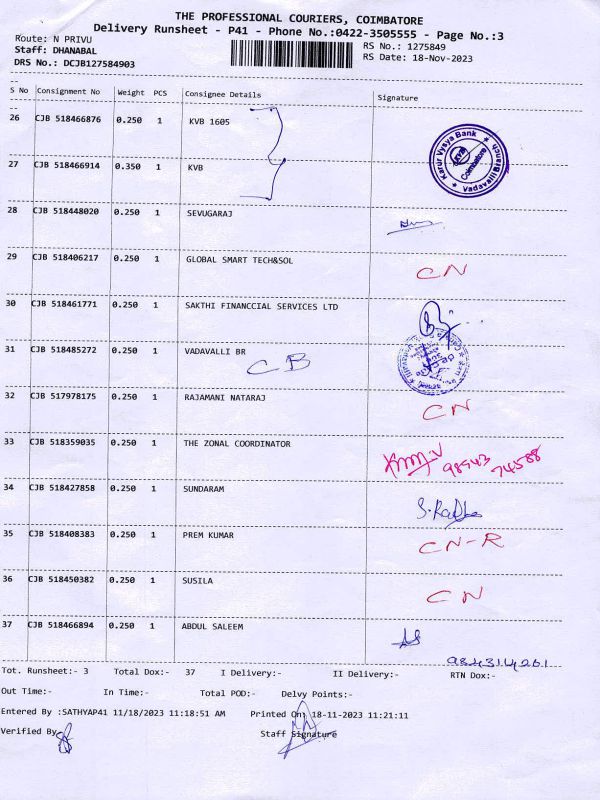 THE PROFESSIONAL COURIERS, COIMBATORE
Delivery Runsheet - P41 - Phone No.:0422-3505555 - Page No.:3
Route: N PRIVU
RS No.: 1275849
Staff: DHANABAL
RS Date: 18-Nov-2023
DRS No.: DCJB127584903
S No Consignment No Weight PCS Consignee Details Signature
26 CJB 518466876 0.250 1 KVB 1605
Karur Vysya Bank
Coimbatore
Vadavalli Branch
27 CJB 518466914 0.350 1 KVB
28 CJB 518448020 0.250 1 SEVUGARAJ
29 CJB 518406217 0.250 1 GLOBAL SMART TECH&SOL CN
30 CJB 518461771 0.250 1 SAKTHI FINANCCIAL SERVICES LTD
31 CJB 518485272 0.250 1 VADAVALLI BR
CB
32 CJB 517978175 0.250 1 RAJAMANI NATARAJ CN
33 CJB 518359035 0.250 1 THE ZONAL COORDINATOR 98943 74588
34 CJB 518427858 0.250 1 SUNDARAM
35 CJB 518408383 0.250 1 PREM KUMAR CN-R
36 CJB 518450382 0.250 1 SUSILA CN
37 CJB 518466894 0.250 1 ABDUL SALEEM
Tot. Runsheet:- 3 Total Dox:- 37 I Delivery:- II Delivery:- RTN Dox:-
Out Time:- In Time:- Total POD:- Delvy Points:-
Entered By :SATHYAP41 11/18/2023 11:18:51 AM Printed On: 18-11-2023 11:21:11
Verified By
Staff Signature